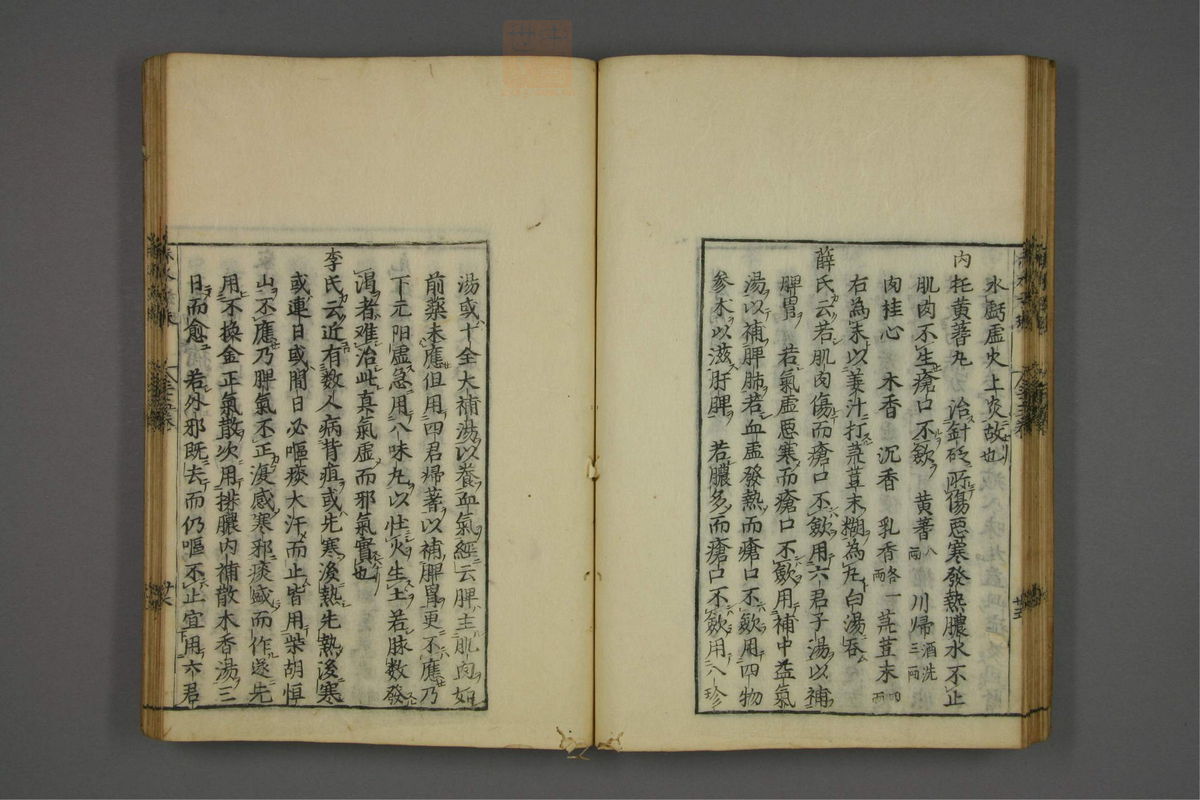 水虧虛火上炎故也
内托黄蓍丸　治針砭所傷惡寒發熱膿水不止
肌肉不生瘡口不歛　黄蓍八兩　川歸酒洗三兩
肉桂心　木香　沉香　乳香各一兩　菉荳末四兩
右為末以姜汁打菉荳末糊為丸白湯吞
薛氏云若肌肉傷而瘡口不歛用六君子湯以補
脾胃　若氣虛惡寒而瘡口不歛用補中益氣
湯以補脾肺若血虛發熱而瘡口不歛用四物
參术以滋肝脾　若膿多而瘡口不歛用八珍
湯或十全大補湯以養血氣經云脾主肌肉如
前藥未應但用四君歸蓍以補脾胃更不應乃
下元阳虛急用八味丸以壮火生土若脉数發
渴者难治此真氣虛而邪氣實也
李氏云近有数人病背疽或先寒後熱先熱後寒
或連日或間日必嘔痰大汗而止皆用柴胡恒
山不應乃脾氣不正復感寒邪痰盛而作遂先
用不換金正氣散次用排膿内補散木香湯三
日而愈　若外邪既去而仍嘔不止宜用六君